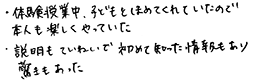 ・体験授業中、子どもとほめてくれていたので
本人も楽しくやっていた
・説明もていねいで初めて知った情報もあり
驚きもあった